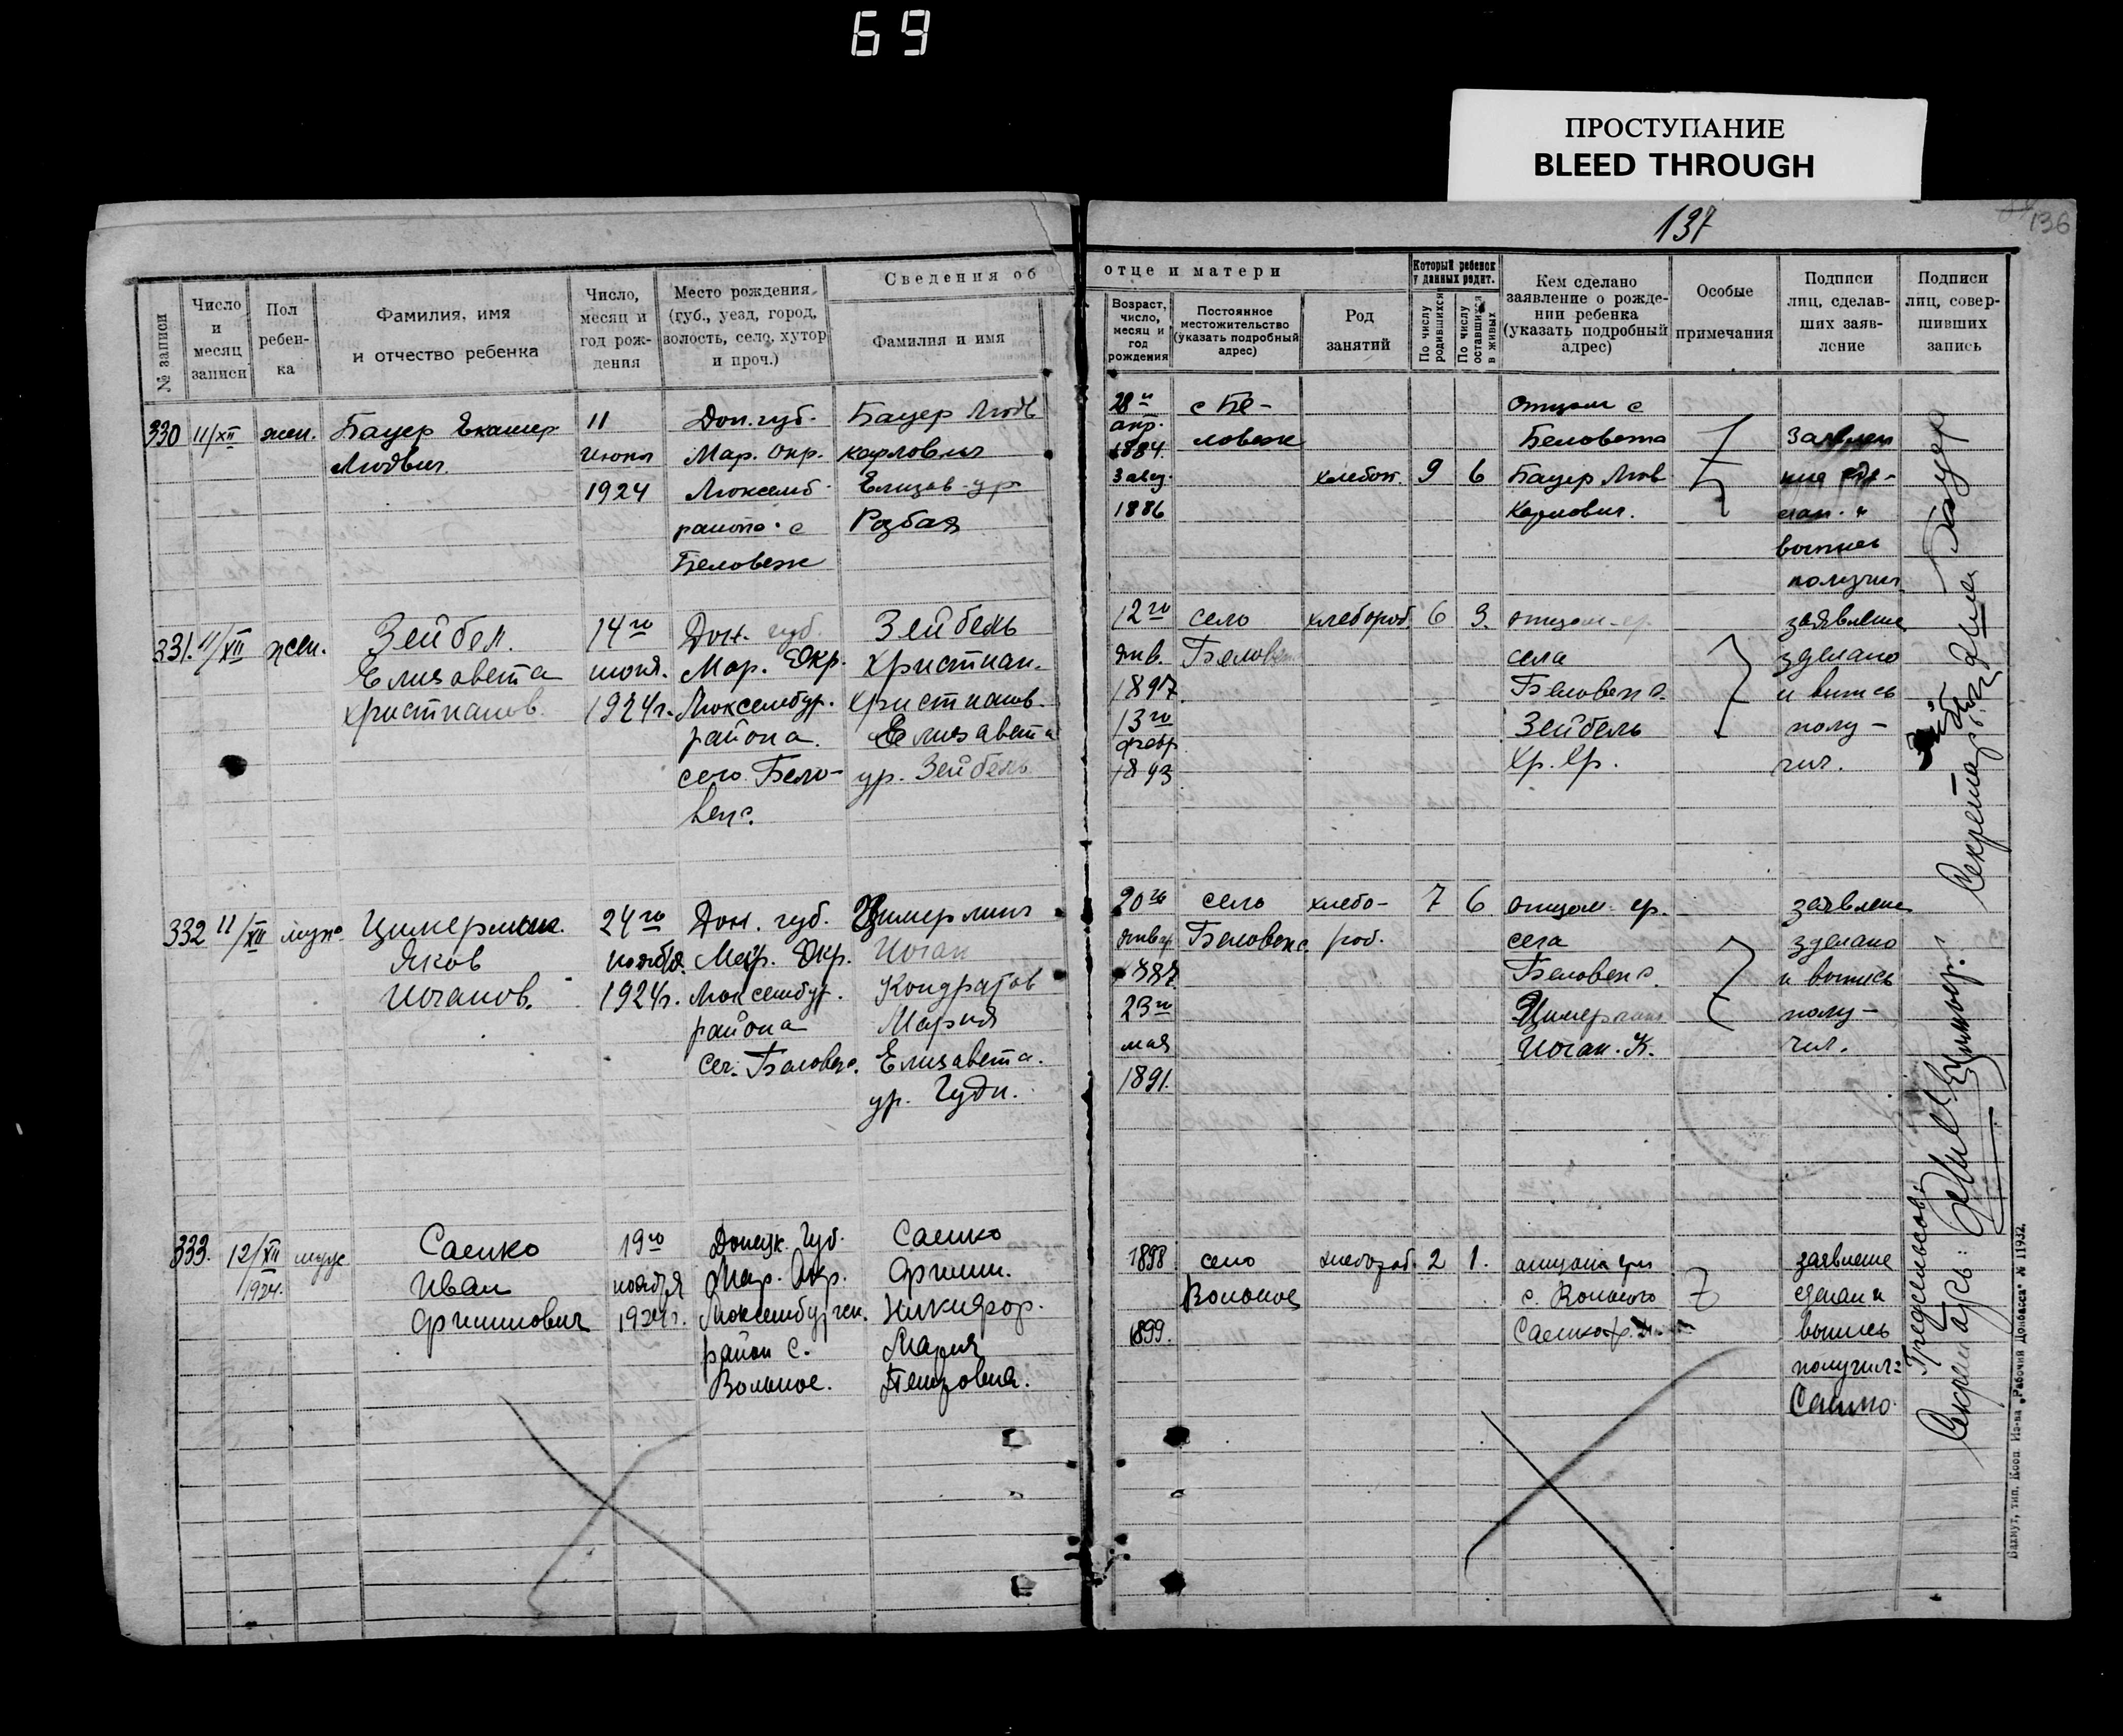 69
ПРОСТУПАНИЕ
BLEED THROUGH
137
136
Сведения об отце и матери
№ записи
Число и месяц записи
Пол ребен-ка
Фамилия, имя и отчество ребенка
Число, месяц и год рож-дения
Место рождения (губ., уезд, город, волость, село, хутор и проч.)
Фамилия и имя
Возраст, число, месяц и год рождения
Постоянное местожительство (указать подробный адрес)
Род занятий
Который ребенок у данных родит.
По числу родившихся
По числу оставшихся в живых
Кем сделано заявление о рожде-нии ребенка (указать подробный адрес)
Особые примечания
Подписи лиц, сделав-ших заяв-ление
Подписи лиц, совер-шивших запись
330 11/XII жен. Бауер Екатер Людвиг.
11 июня 1924
Дон. губ. Мар. Окр. Люксемб. района с Беловеж
Бауер Людв Карлович
Елизав ур
28 апр. 1884
3 авг. 1886
с Бе-ловеж
хлебоп. 9 6
Отцом с Беловежа
Бауер Люв Карлович.
331. 11/XII жен. Зейбел. Елизавета Христианов.
14го июня. 1924г.
Дон. губ. Мар. Окр. Люксембур. района. село Бело-веж.
Зейбель Христиан. Христианов.
Елизавета ур. Зейбель
12го янв. 1897
13го февр 1893
село Беловеж
хлебороб. 6 3.
отцом гр. села Беловеж. Зейбель Хр. Хр.
заявление зделано и выпись полу-чил.
332 11/XII муж. Цимерман. Яков Иоганов.
24го ноября. 1924г.
Дон. губ. Мар. Окр. Люксембур. района сел. Беловеж.
Цимерман Иоган Кондратов
Мария Елизавета. ур. Гуди.
20го январ 1887
23го мая 1891.
село Беловеж.
хлебо-роб. 7 6
отцом гр. села Беловеж. Цимерман Иоган. К.
заявление зделано и выпись полу-чил.
333. 12/XII 1924. муж. Саенко Иван
19го ноября 1924г.
Донецк. Губ. Мар. Окр. Люксембурген. район с. Вольное.
Саенко Никифор.
Мария Петровна.
1898
1899.
село Вольное
хлебороб. 2 1.
с. Вольного Саенко
заявление сделан и выпись получил:
Саенко
Секретарь: Бауер
Предсельсов.
Секретарь:
Бахмут, тип. Кооп. Из-ва „Рабочий Донбасса“ № 11932.